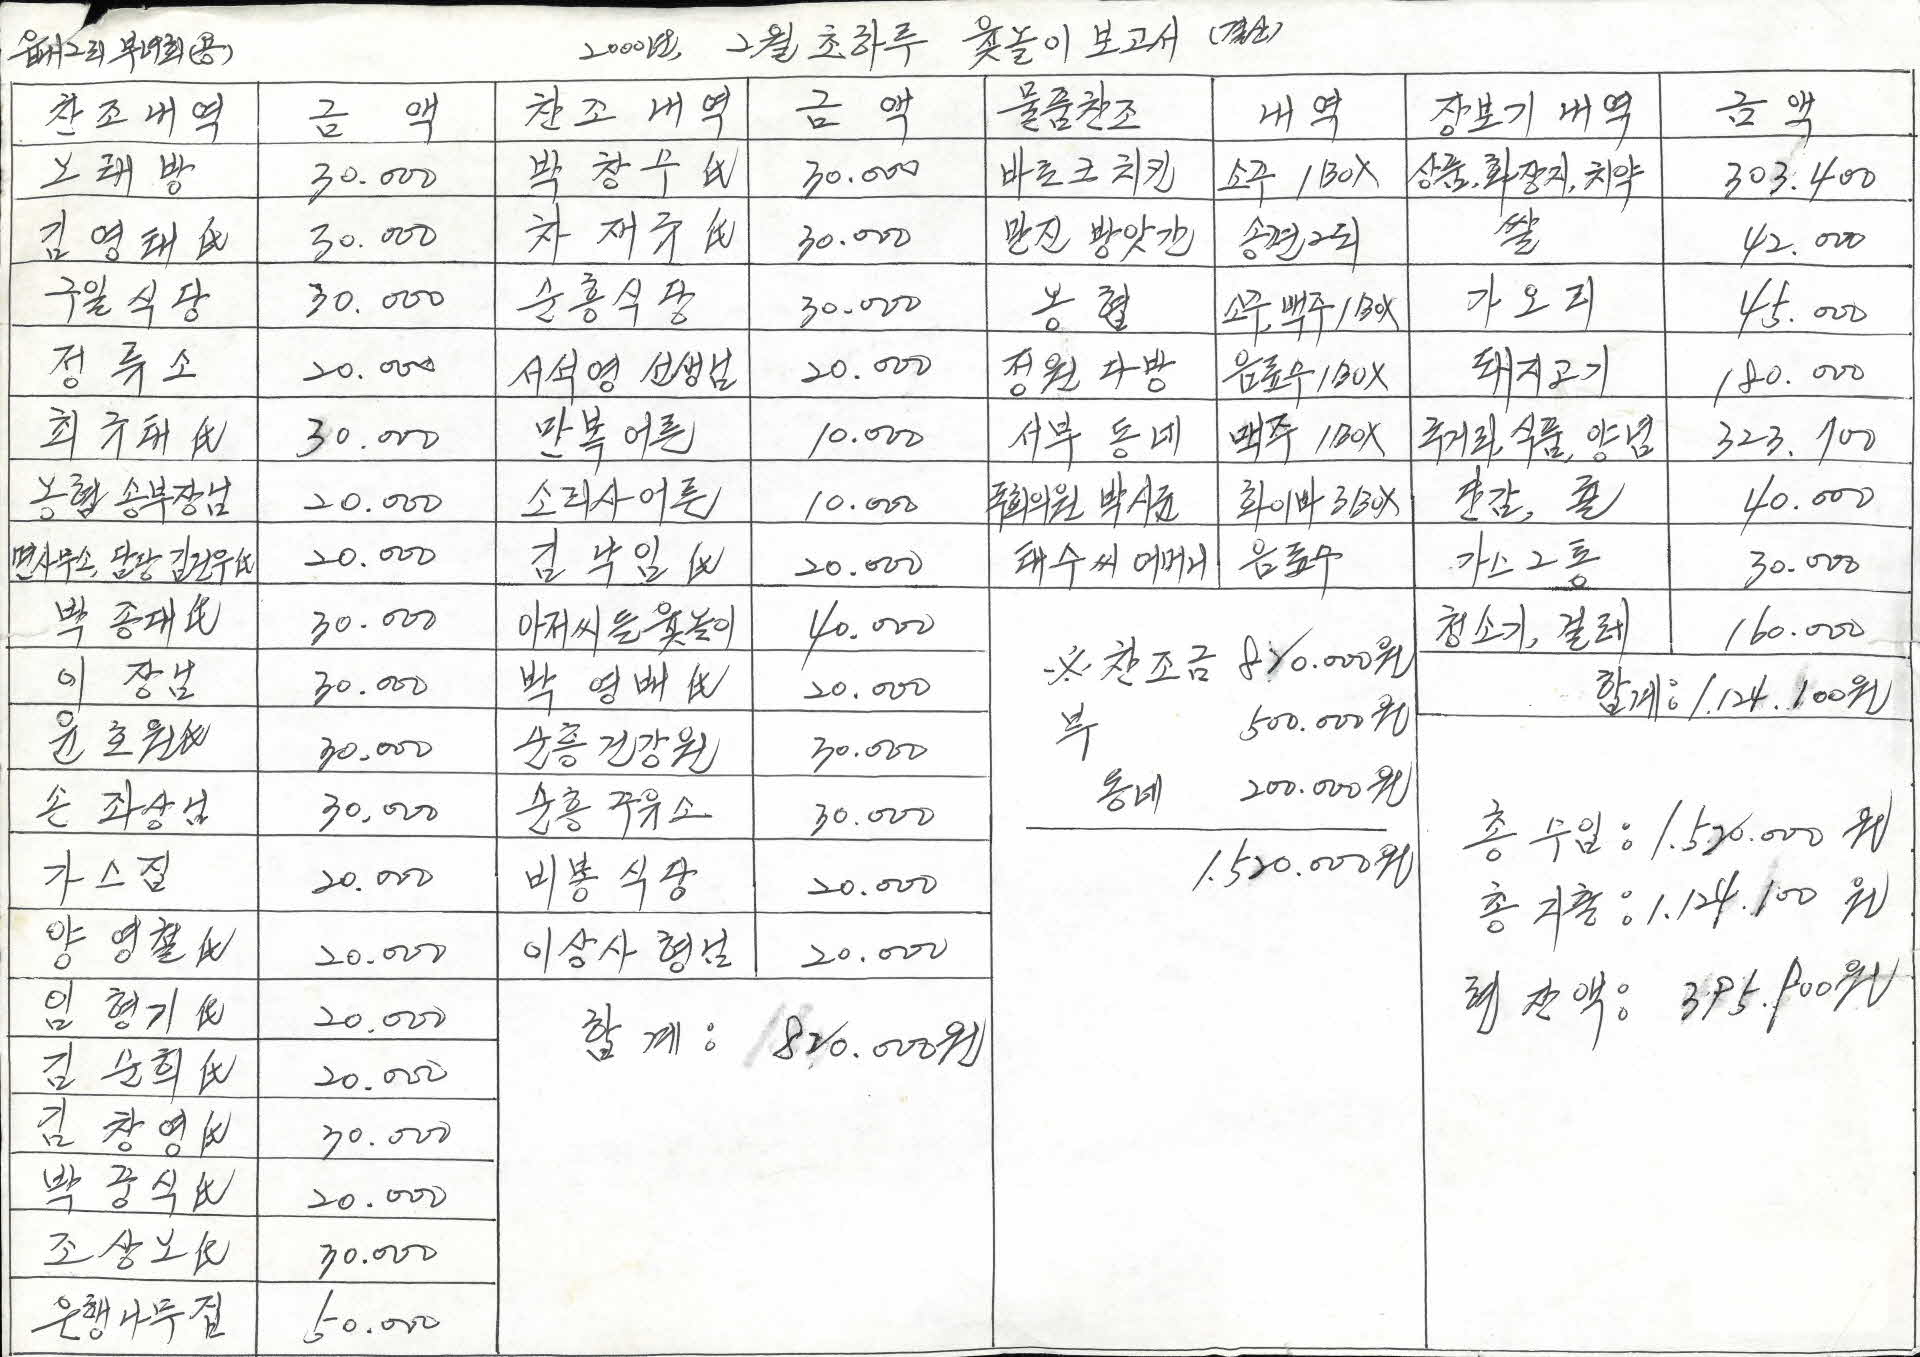 읍내2리 부녀회(용)
2000년. 2월 초하루 윷놀이 보고서 (결산)
찬조내역 금 액 찬조내역 금 액 물품찬조 내역 장보기 내역 금 액
노래방 30.000 박창우 氏 30.000 바르크 치킨 소주 1BOX 상품,화장지,치약 303.400
김영태 氏 30.000 차재규 氏 30.000 만진 방앗간 송편2되 쌀 42.000
구일식당 30.000 순흥식당 30.000 농협 소주,맥주 1BOX 가오리 45.000
정류소 20.000 서석영 선생님 20.000 정원 다방 음료수 1BOX 돼지고기 180.000
최규태 氏 30.000 만복어른 10.000 서부 동네 맥주 1BOX 국거리,식품,양념 323.700
농협 송부장님 20.000 소리사어른 10.000 의원 박시균 화이바 3BOX 단감, 귤 40.000
면사무소,담당 김진우氏 20.000 김낙임 氏 20.000 태수씨 어머니 음료수 가스2통 30.000
박종대氏 30.000 아저씨들윷놀이 40.000 청소기, 걸레 160.000
이장님 30.000 박영배 氏 20.000 ※ 찬조금 820.000원 합계: 1.124.100원
윤호원氏 30.000 순흥건강원 30.000 부 500.000원
손좌상님 30.000 순흥주유소 30.000 동네 200.000원 총 수입: 1.520.000원
가스집 20.000 비봉식당 20.000 1.520.000원 총 지출: 1.124.100원
양영철 氏 20.000 이상사 형님 20.000 현 잔액: 395.900원
임형기 氏 20.000 합계: 820.000원
김순희 氏 20.000
김창영 氏 30.000
박중식 氏 20.000
조상노 氏 30.000
은행나무집 50.000